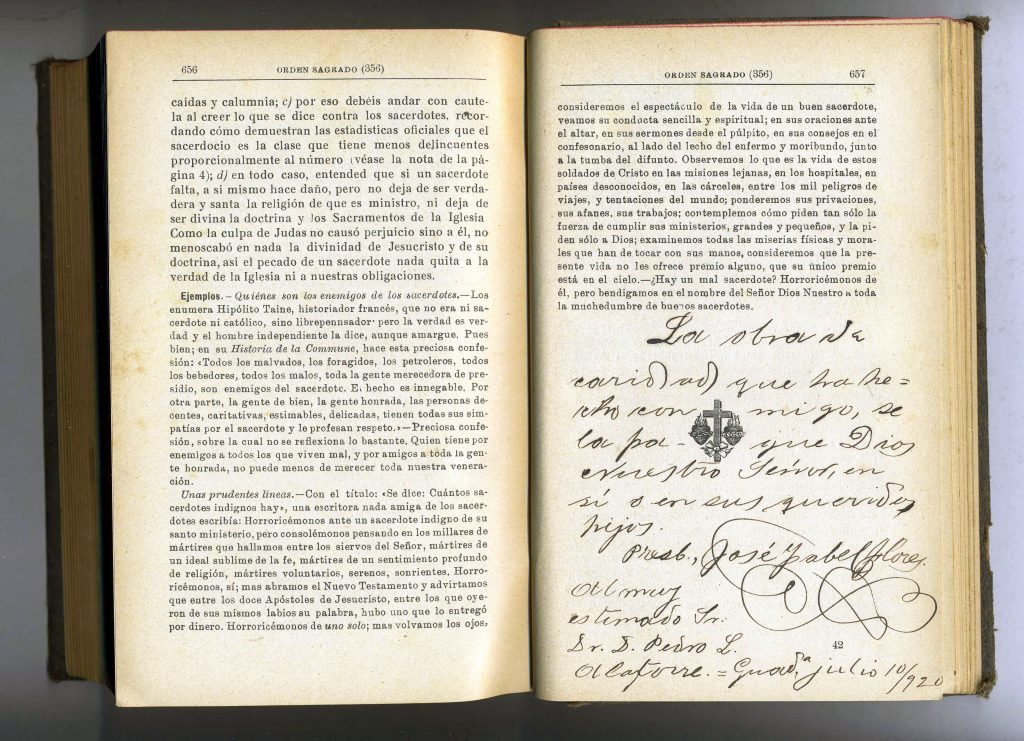 656
ORDEN SAGRADO (356)
caídas y calumnia; c) por eso debéis andar con caute-
la al creer lo que se dice contra los sacerdotes, recor-
dando cómo demuestran las estadísticas oficiales que el
sacerdocio es la clase que tiene menos delincuentes
proporcionalmente al número (véase la nota de la pá-
gina 4); d) en todo caso, entended que si un sacerdote
falta, a sí mismo hace daño, pero no deja de ser verda-
dera y santa la religión de que es ministro, ni deja de
ser divina la doctrina y los Sacramentos de la Iglesia
Como la culpa de Judas no causó perjuicio sino a él, no
menoscabó en nada la divinidad de Jesucristo y de su
doctrina, así el pecado de un sacerdote nada quita a la
verdad de la Iglesia ni a nuestras obligaciones.
Ejemplos.—Quiénes son los enemigos de los sacerdotes.—Los
enumera Hipólito Taine, historiador francés, que no era ni sa-
cerdote ni católico, sino librepensador· pero la verdad es ver-
dad y el hombre independiente la dice, aunque amargue. Pues
bien; en su Historia de la Commune, hace esta preciosa confe-
sión: «Todos los malvados, los foragidos, los petroleros, todos
los bebedores, todos los malos, toda la gente merecedora de pre-
sidio, son enemigos del sacerdote. El hecho es innegable. Por
otra parte, la gente de bien, la gente honrada, las personas de-
centes, caritativas, estimables, delicadas, tienen todas sus sim-
patías por el sacerdote y le profesan respeto.»—Preciosa confe-
sión, sobre la cual no se reflexiona lo bastante. Quien tiene por
enemigos a todos los que viven mal, y por amigos a toda la gen-
te honrada, no puede menos de merecer toda nuestra venera-
ción.
Unas prudentes líneas.—Con el título: «Se dice: Cuántos sa-
cerdotes indignos hay», una escritora nada amiga de los sacer-
dotes escribía: Horroricémonos ante un sacerdote indigno de su
santo ministerio, pero consolémonos pensando en los millares de
mártires que hallamos entre los siervos del Señor, mártires de
un ideal sublime de la fe, mártires de un sentimiento profundo
de religión, mártires voluntarios, serenos, sonrientes. Horro-
ricémonos, sí; mas abramos el Nuevo Testamento y advirtamos
que entre los doce Apóstoles de Jesucristo, entre los que oye-
ron de sus mismos labios su palabra, hubo uno que lo entregó
por dinero. Horroricémonos de uno solo; mas volvamos los ojos,
ORDEN SAGRADO (356)
657
consideremos el espectáculo de la vida de un buen sacerdote,
veamos su conducta sencilla y espiritual; en sus oraciones ante
el altar, en sus sermones desde el púlpito, en sus consejos en el
confesonario, al lado del lecho del enfermo y moribundo, junto
a la tumba del difunto. Observemos lo que es la vida de estos
soldados de Cristo en las misiones lejanas, en los hospitales, en
países desconocidos, en las cárceles, entre los mil peligros de
viajes, y tentaciones del mundo; ponderemos sus privaciones,
sus afanes, sus trabajos; contemplemos cómo piden tan sólo la
fuerza de cumplir sus ministerios, grandes y pequeños, y la pi-
den sólo a Dios; examinemos todas las miserias físicas y mora-
les que han de tocar con sus manos, consideremos que la pre-
sente vida no les ofrece premio alguno, que su único premio
está en el cielo.—¿Hay un mal sacerdote? Horroricémonos de
él, pero bendigamos en el nombre del Señor Dios Nuestro a toda
la muchedumbre de buenos sacerdotes.
La obra de
caridad que ha he=
cho con migo, se
la pa- gue Dios
Nuestro Señor, en
sí o en sus queridos
hijos.
Presb., José Isabel Flores.
Al muy
estimado Sr.
Dr. D. Pedro L.
42
Alatorre. = Guad.ª julio 10/920